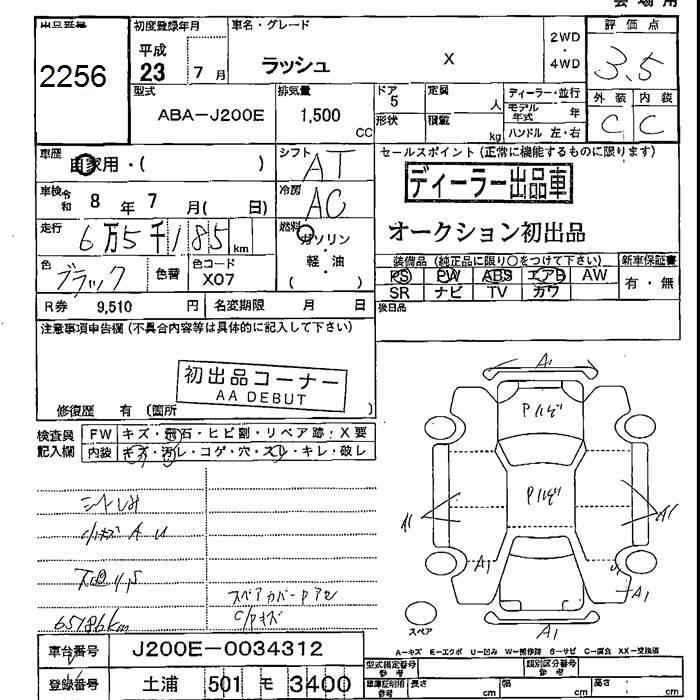 会場用
出品番号
2256
初度登録年月
平成
23 7月
車名・グレード
ラッシュ X
2WD
・
4WD
評価点
3.5
外装 内装
C C
型式
ABA-J200E
排気量
1,500
CC
ドア
5
形状
定員
人
積載
kg
ディーラー・並行
モデル
年式 年
ハンドル 左・右
車歴
自家用・( )
シフト
AT
車検 令和 8年7月( 日)
冷房
AC
走行
6万5千185km
燃料
ガソリン
・
軽・油
( )
色
ブラック
色替
色コード
X07
R券 9,510 円
名変期限 月 日
セールスポイント(正常に機能するものに限ります)
ディーラー出品車
オークション初出品
装備品(純正品に限り○をつけて下さい)
新車保証書
PS PW ABS エアB AW
有・無
SR ナビ TV カワ
後日品
注意事項申告欄(不具合内容等は具体的に記入して下さい)
初出品コーナー
AA DEBUT
修復歴 有(箇所 )
検査員
記入欄
FW キズ・飛石・ヒビ割・リペア跡・X要
内装 キズ・汚レ・コゲ・穴・スレ・キレ・破レ
シートしみ
65186km
スペアカバーPアセ
C/Pキズ
A1
Pハゼ
Pハゼ
A1
A1
A1
A1
A1
スペア
A-キズ E-エクボ U-凹み W-補修跡 S-サビ C-腐食 XX-交換済
車台番号
J200E-0034312
登録番号
土浦 501 モ 3400
型式指定番号
参考
類別区分番号
参考
車庫証明用
参考
長さ cm
幅 cm
高さ cm